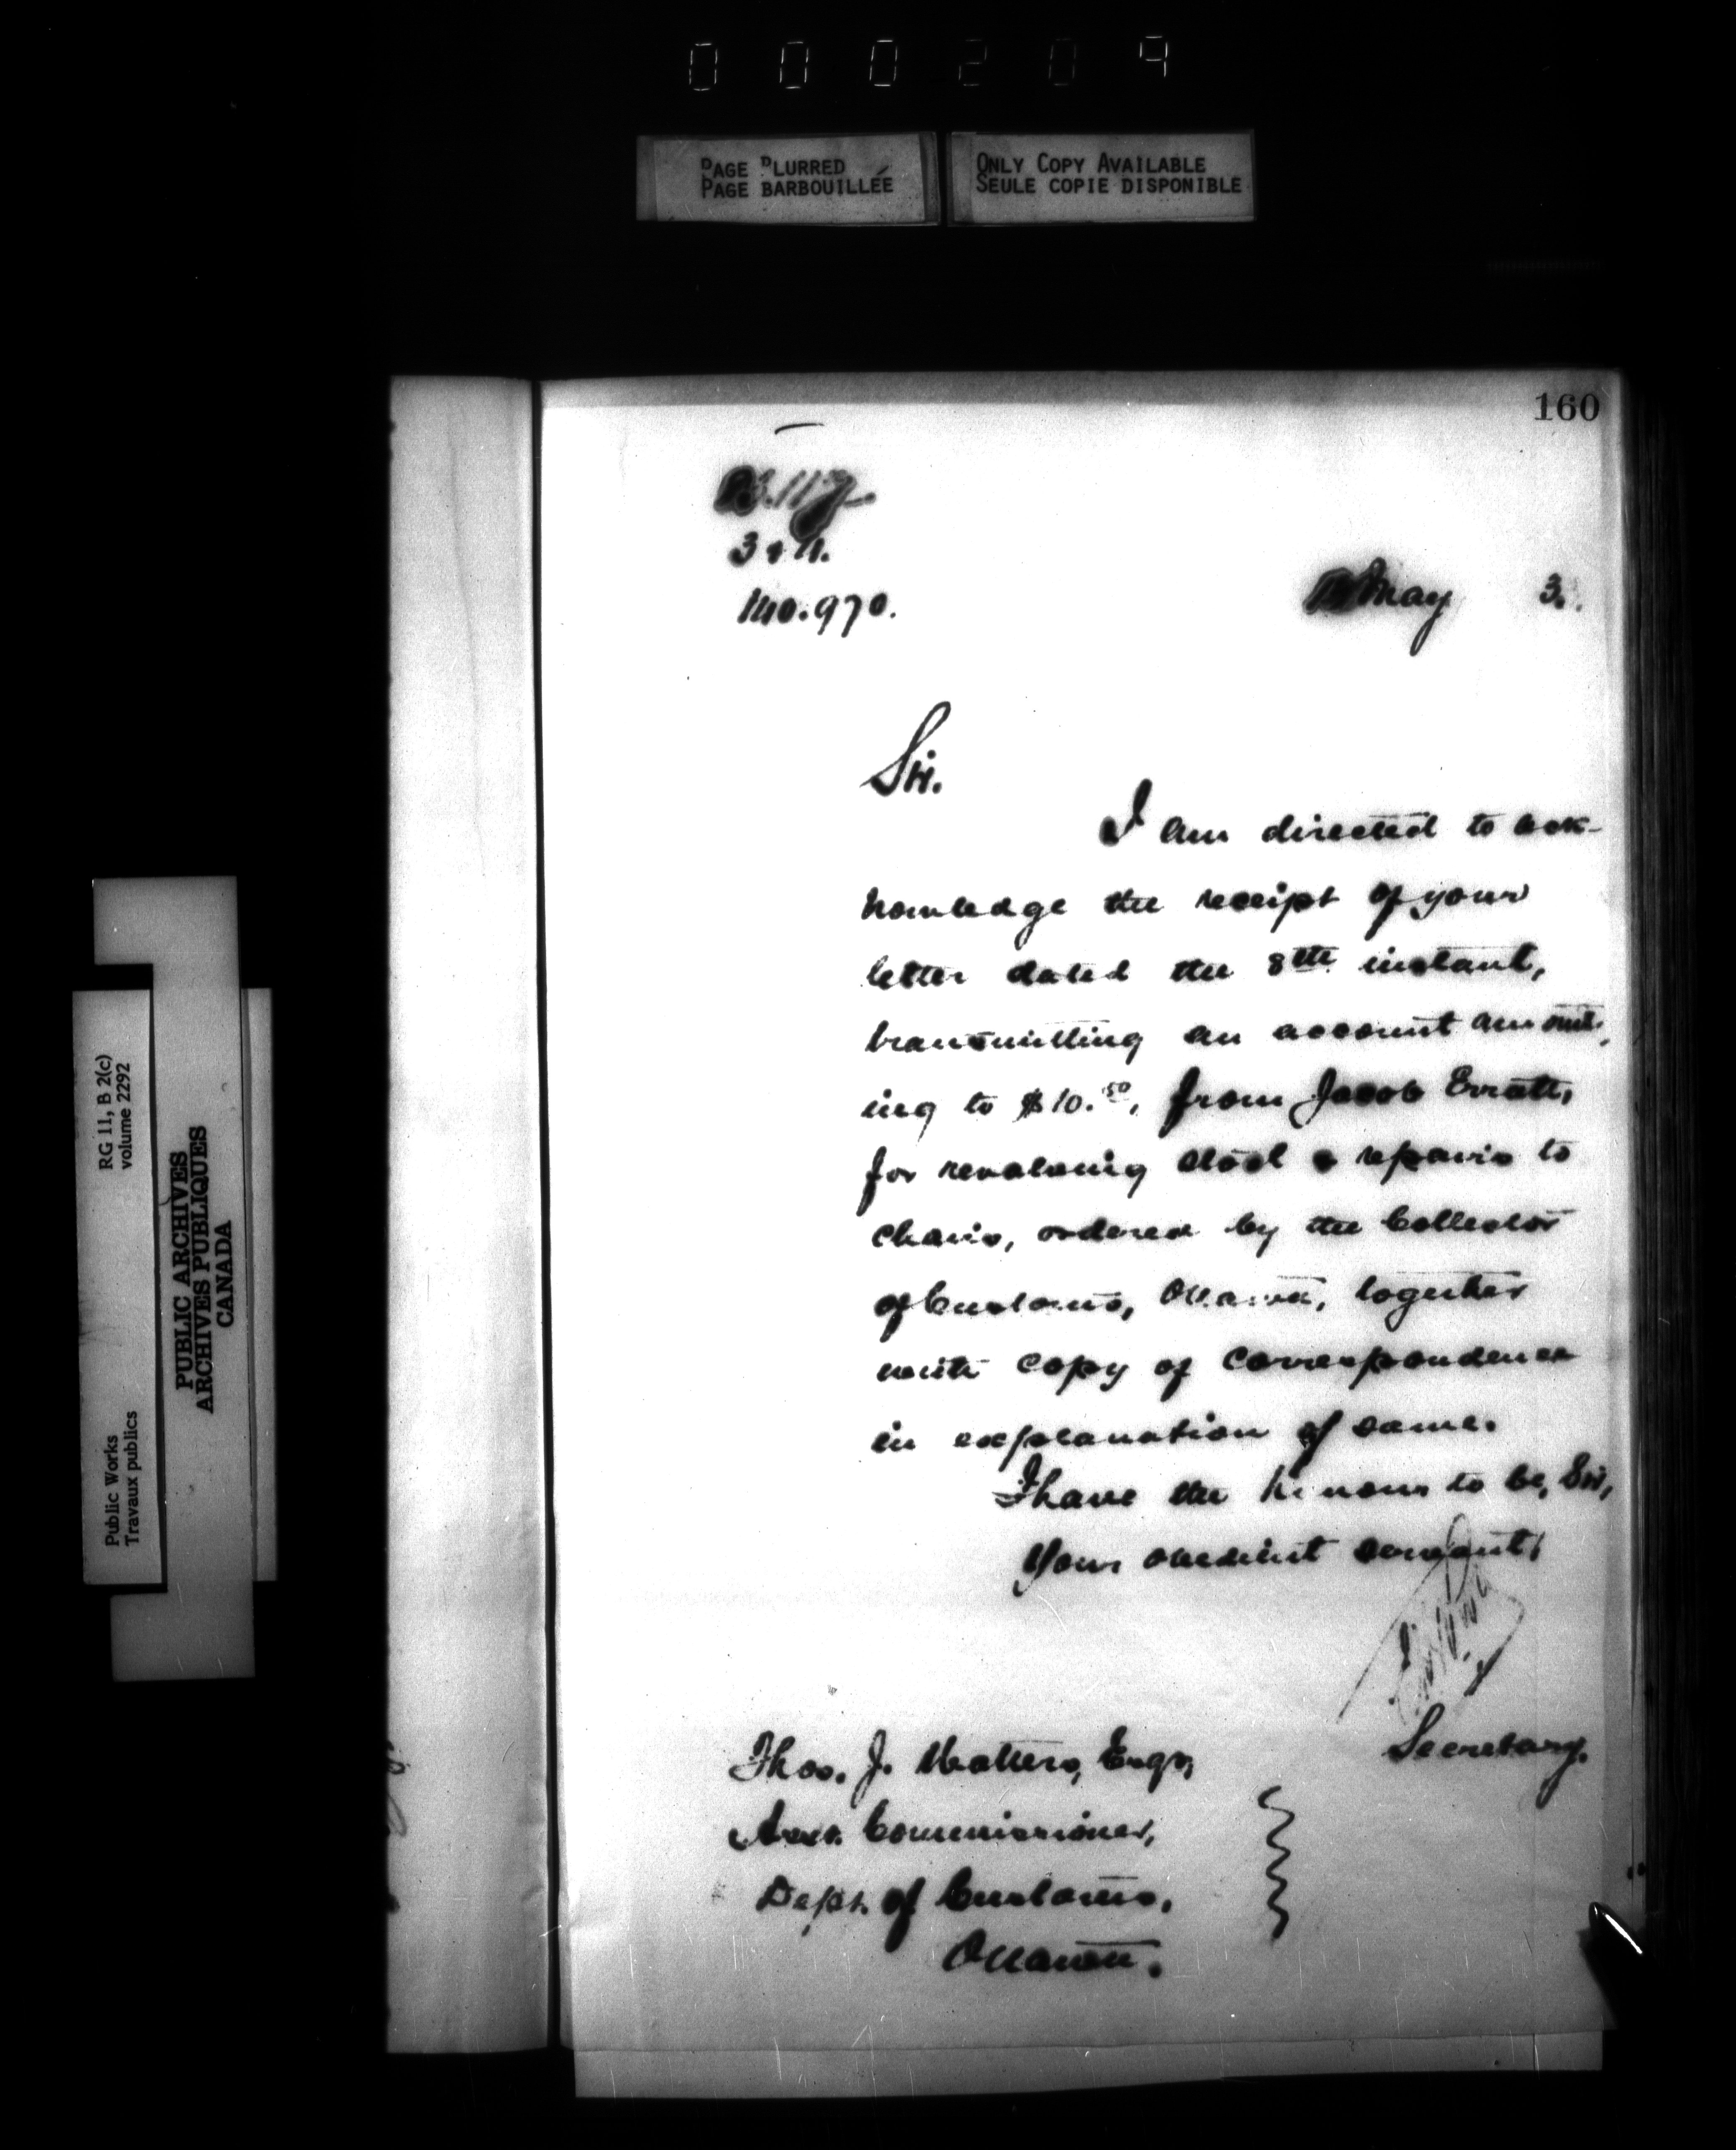 000209
PAGE BLURRED
PAGE BARBOUILLÉE
ONLY COPY AVAILABLE
SEULE COPIE DISPONIBLE
160
140.970.
May 3.
Sir.
I am directed to ack-
nowledge the receipt of your
letter dated the 8th instant,
transmitting an account amount-
ing to $10.50, from Jacob Erratt,
for revolving stool & repairs to
chairs, ordered by the Collector
of Customs, Ottawa, together
with copy of correspondence
in explanation of same.
I have the honour to be, Sir,
Your obedient servant,
Secretary.
Thos. J. Watters, Esqr,
Asst. Commissioner,
Dept. of Customs,
Ottawa.
RG 11, B 2(c)
volume 2292
PUBLIC ARCHIVES
ARCHIVES PUBLIQUES
CANADA
Public Works
Travaux publics